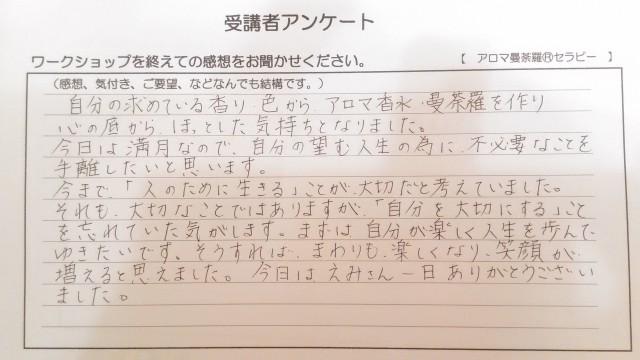 受講者アンケート
ワークショップを終えての感想をお聞かせください。 【 アロマ曼荼羅Ⓡセラピー 】
(感想、気付き、ご要望、などなんでも結構です。)
自分の求めている香り、色から、アロマ香水・曼荼羅を作り
心の底から、ほっとした気持ちとなりました。
今日は満月なので、自分の望む人生の為に、不必要なことを
手離したいと思います。
今まで、「人のために生きる」ことが、大切だと考えていました。
それも、大切なことではありますが、「自分を大切にする」こと
を忘れていた気がします。まずは、自分が楽しく人生を歩んで
ゆきたいです。そうすれば、まわりも、楽しくなり、笑顔が
増えると思えました。 今日は、えみさん一日ありがとうござい
ました。